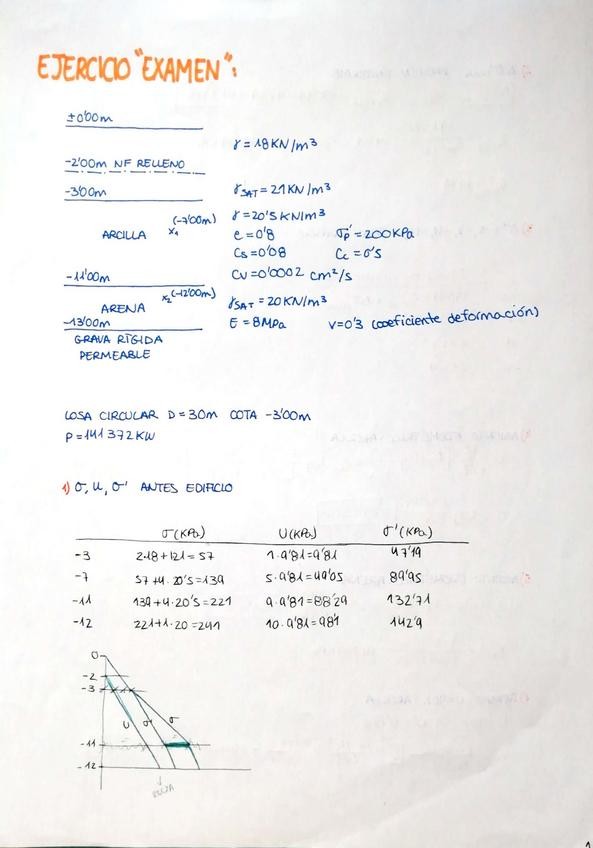 EJERCICIO "EXAMEN":
±0'00m
γ = 18 KN/m³
-2'00m NF RELLENO
-3'00m γSAT = 21 KN/m³
γ = 20'5 KN/m³
(-7'00m)
ARCILLA x₁ e = 0'8 σp' = 200 KPa
Cs = 0'08 Cc = 0'5
-11'00m Cv = 0'0002 cm²/s
(-12'00m)
ARENA x₂ γSAT = 20 KN/m³
-13'00m E = 8MPa ν = 0'3 (coeficiente deformación)
GRAVA RÍGIDA
PERMEABLE
LOSA CIRCULAR D = 30m COTA -3'00m
P = 141372 KN
1) σ, u, σ' ANTES EDIFICIO
σ (KPa) U (KPa) σ' (KPa)
-3 2·18 + 1·21 = 57 1·9'81 = 9'81 47'19
-7 57 + 4·20'5 = 139 5·9'81 = 49'05 89'95
-11 139 + 4·20'5 = 221 9·9'81 = 88'29 132'71
-12 221 + 1·20 = 241 10·9'81 = 98'1 142'9
0
-2
-3
U σ' σ
-11
-12
1